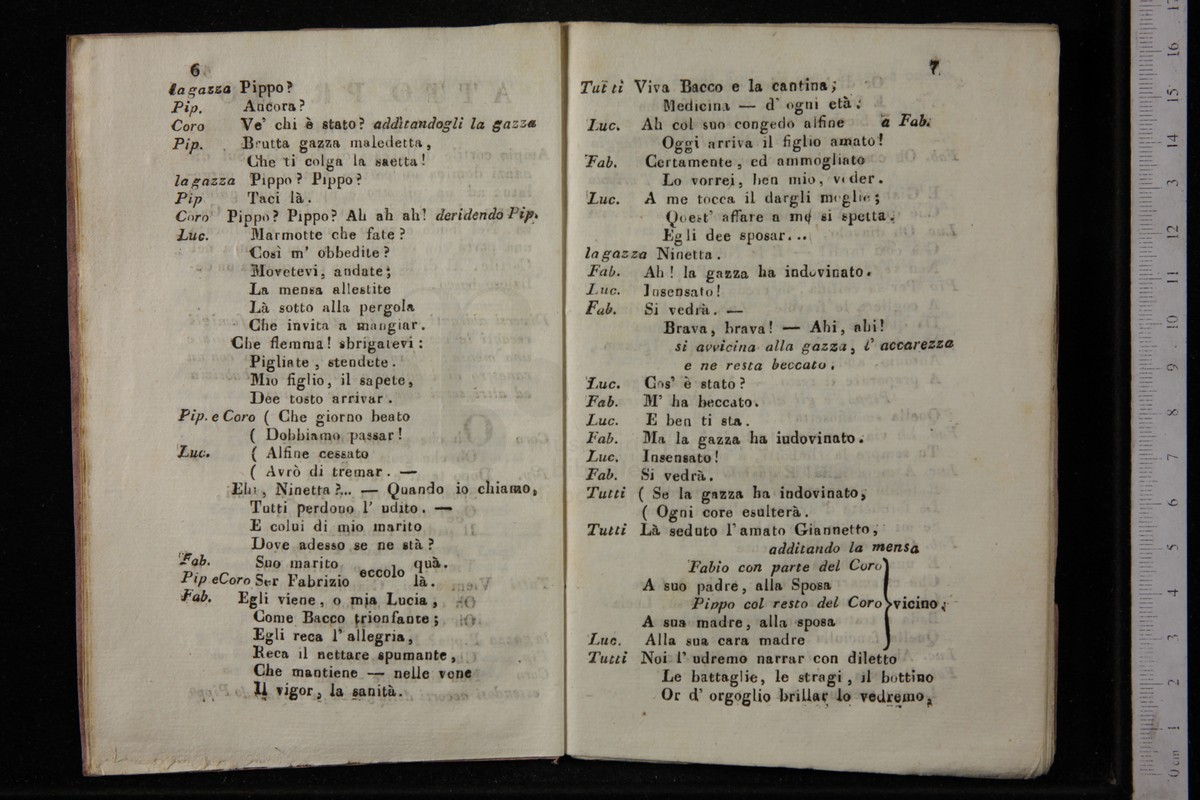 6
la gazza Pippo?
Pip. Ancora?
Coro Ve' chi è stato? additandogli la gazza
Pip. Brutta gazza maledetta,
Che ti colga la saetta!
la gazza Pippo? Pippo?
Pip Taci là.
Coro Pippo? Pippo? Ah ah ah! deridendo Pip.
Luc. Marmotte che fate?
Così m' obbedite?
Movetevi, andate;
La mensa allestite
Là sotto alla pergola
Che invita a mangiar.
Che flemma! sbrigatevi:
Pigliate, stendete.
Mio figlio, il sapete,
Dee tosto arrivar.
Pip. e Coro ( Che giorno beato
( Dobbiamo passar!
Luc. ( Alfine cessato
( Avrò di tremar. —
Ehi, Ninetta?... — Quando io chiamo,
Tutti perdono l' udito. —
E colui di mio marito
Dove adesso se ne stà?
Fab. Suo marito eccolo quà.
Pip eCoro Ser Fabrizio là.
Fab. Egli viene, o mia Lucia,
Come Bacco trionfante;
Egli reca l' allegria,
Reca il nettare spumante,
Che mantiene — nelle vene
Il vigor, la sanità.
7.
Tutti Viva Bacco e la cantina;
Medicina — d' ogni età.
Luc. Ah col suo congedo alfine a Fab.
Oggi arriva il figlio amato!
Fab. Certamente, ed ammogliato
Lo vorrei, ben mio, veder.
Luc. A me tocca il dargli moglie;
Quest' affare a me si spetta.
Egli dee sposar...
la gazza Ninetta.
Fab. Ah! la gazza ha indovinato.
Luc. Insensato!
Fab. Si vedrà. —
Brava, brava! — Ahi, ahi!
si avvicina alla gazza, l' accarezza
e ne resta beccato.
Luc. Cos' è stato?
Fab. M' ha beccato.
Luc. E ben ti sta.
Fab. Ma la gazza ha iudovinato.
Luc. Insensato!
Fab. Si vedrà.
Tutti ( Se la gazza ha indovinato,
( Ogni core esulterà.
Tutti Là seduto l' amato Giannetto,
additando la mensa
Fabio con parte del Coro
A suo padre, alla Sposa
Pippo col resto del Coro vicino,
A sua madre, alla sposa
Luc. Alla sua cara madre
Tutti Noi l' udremo narrar con diletto
Le battaglie, le stragi, il bottino
Or d' orgoglio brillar lo vedremo,
17
16
15
14
13
12
11
10
9
8
7
6
5
4
3
2
1
0 cm